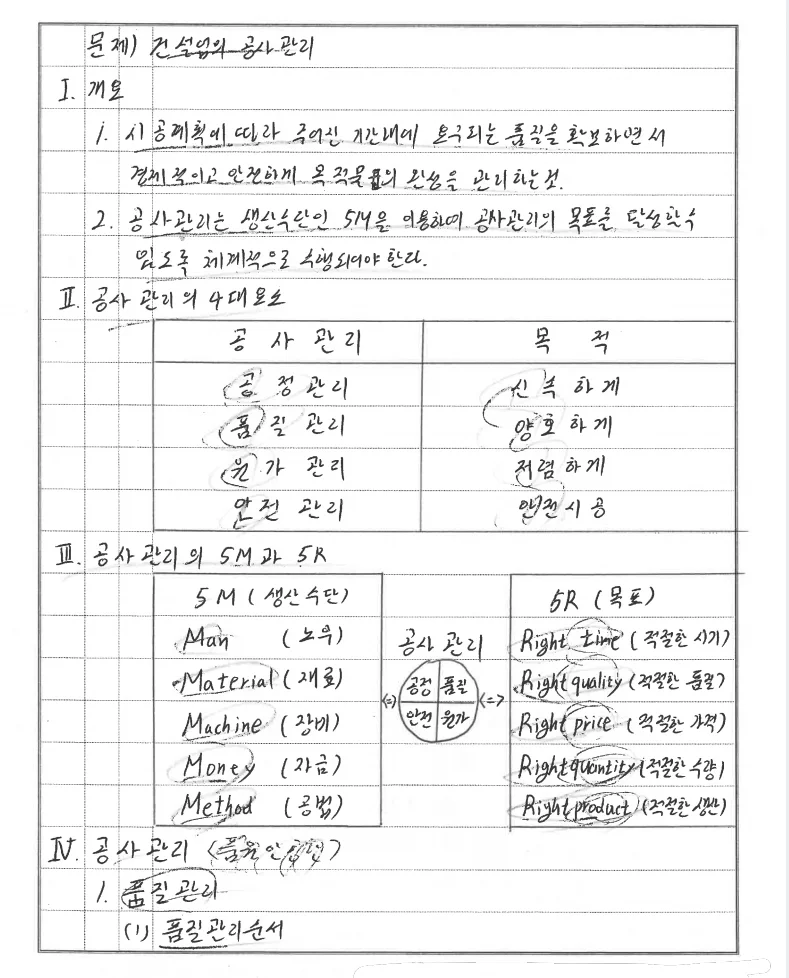 문제) 건설업의 공사관리
I. 개요
1. 시공계획에 따라 주어진 기간내에 요구되는 품질을 확보하면서
경제적이고 안전하게 목적물의 완성을 관리하는것.
2. 공사관리는 생산수단인 5M을 이용하여 공사관리의 목표를 달성할수
있도록 체계적으로 수행되어야한다.
II. 공사관리의 4대요소
공사관리 목적
공정관리 신속하게
품질관리 양호하게
원가관리 저렴하게
안전관리 안전시공
III. 공사관리의 5M과 5R
5M (생산수단)
Man (노무)
Material (재료)
Machine (장비)
Money (자금)
Method (공법)
공사관리
공정 품질
<=> <=>
안전 원가
5R (목표)
Right time (적절한 시기)
Right quality (적절한 품질)
Right price (적절한 가격)
Right quantity (적절한 수량)
Right product (적절한 생산)
IV. 공사관리
1. 품질관리
(1) 품질관리순서